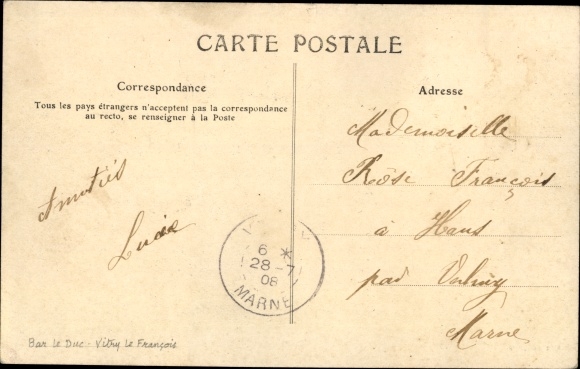 CARTE POSTALE
Correspondance
Tous les pays étrangers n'acceptent pas la correspondance
au recto, se renseigner à la Poste
Amitiés
Lucie
6 *
28-7
08
MARNE
Adresse
Mademoiselle
Rose François
à Hans
par Valmy
Marne
Bar le Duc - Vitry le François